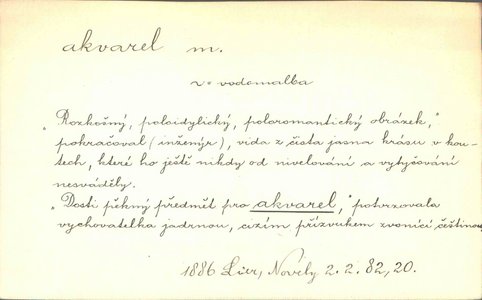 akvarel m.
v. vodomalba
„Rozkošný, poloidylický, poloromantický obrázek,"
pokračoval (inženýr), vida z čista jasna krásu v kou-
tech, které ho ještě nikdy od nivelování a vytyčování
nesváděly.
„Dosti pěkný předmět pro akvarel," potvrzovala
vychovatelka jadrnou, cizím přízvukem zvonící češtinou
1886 Lier, Novely 2. 2. 82, 20.